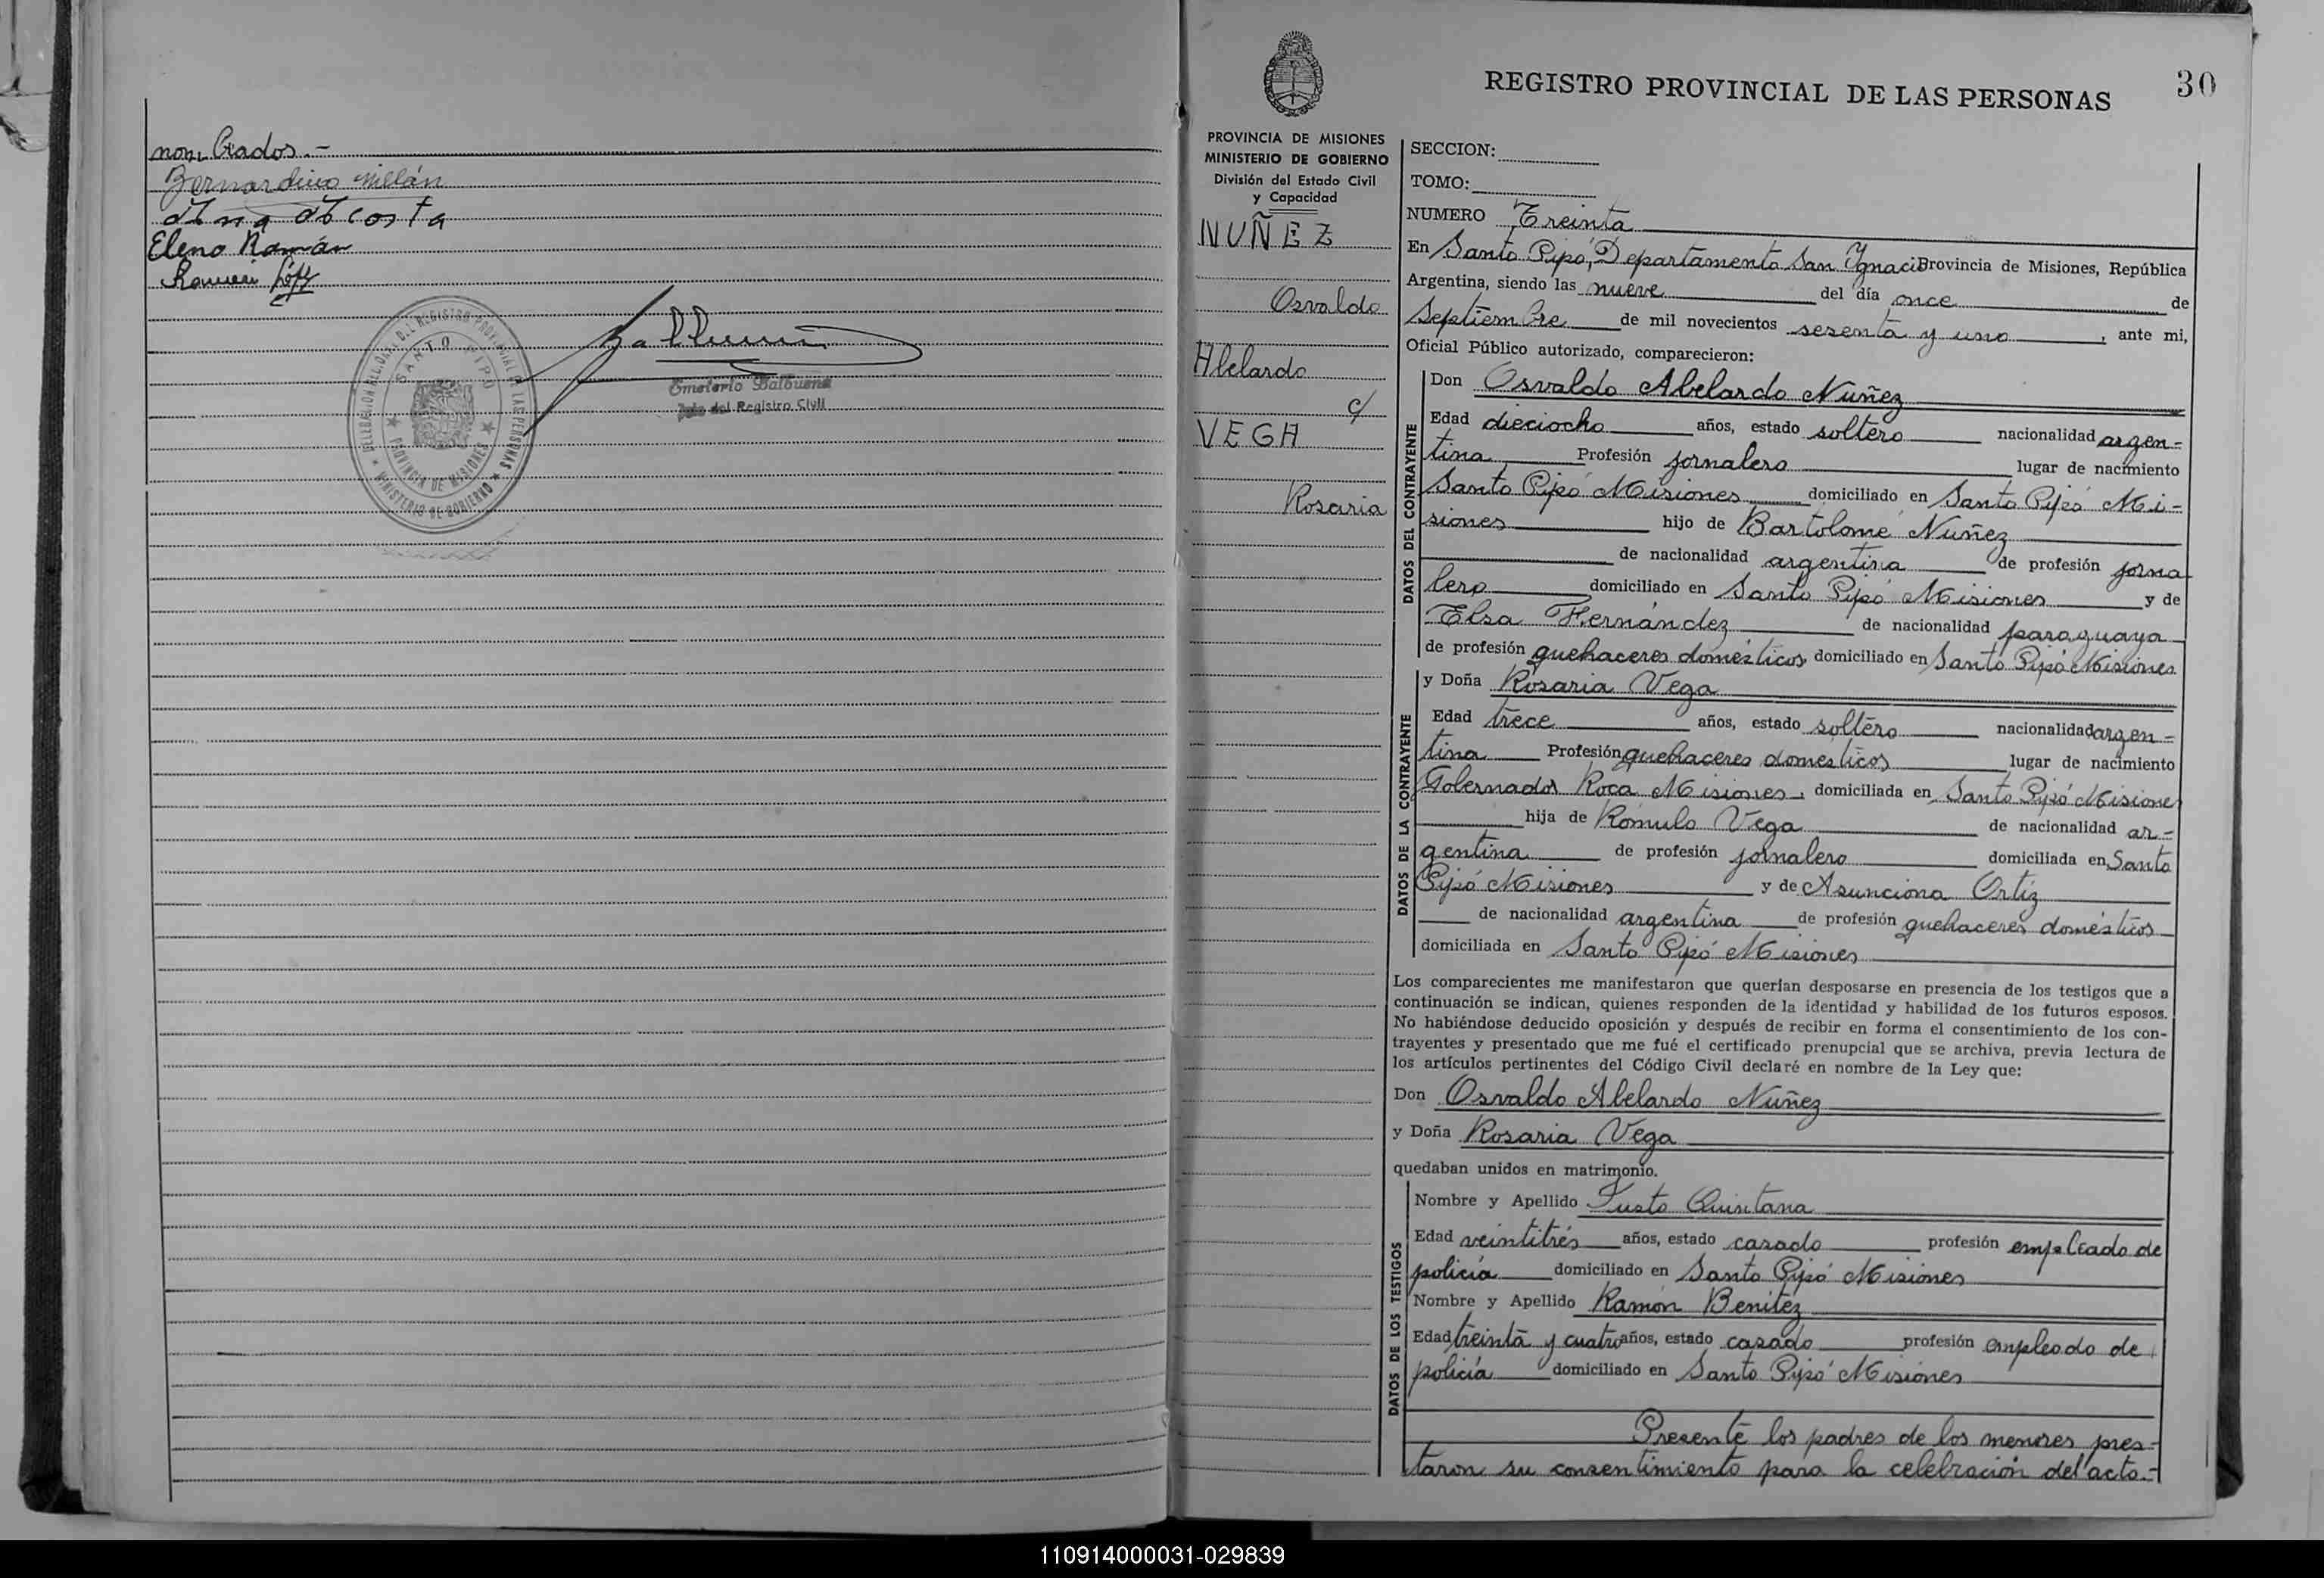 nombrados.-
Bernardino Millán
Elena Román
Ramón López
DELEGACION
DEL REGISTRO PROVINCIAL DE LAS PERSONAS
SANTO PIPO
PROVINCIA DE MISIONES
MINISTERIO DE GOBIERNO
Emeterio Balbuena
Jefe del Registro Civil
REGISTRO PROVINCIAL DE LAS PERSONAS
30
PROVINCIA DE MISIONES
MINISTERIO DE GOBIERNO
División del Estado Civil
y Capacidad
NUÑEZ
Osvaldo
Abelardo
c/
VEGA
Rosaria
SECCION:
TOMO:
NUMERO Treinta
En Santo Pipó, Departamento San Ignacio Provincia de Misiones, República
Argentina, siendo las nueve del día once de
Septiembre de mil novecientos sesenta y uno, ante mi,
Oficial Público autorizado, comparecieron:
DATOS DEL CONTRAYENTE
Don Osvaldo Abelardo Nuñez
Edad dieciocho años, estado soltero nacionalidad argen=
tina Profesión jornalero lugar de nacimiento
Santo Pipó Misiones domiciliado en Santo Pipó Mi=
siones hijo de Bartolomé Nuñez
de nacionalidad argentina de profesión jorna
lero domiciliado en Santo Pipó Misiones y de
Elsa Hernández de nacionalidad paraguaya
de profesión quehaceres domésticos domiciliado en Santo Pipó Misiones
DATOS DE LA CONTRAYENTE
y Doña Rosaria Vega
Edad trece años, estado soltero nacionalidad argen=
tina Profesión quehaceres domesticos lugar de nacimiento
Gobernador Roca Misiones, domiciliada en Santo Pipó Misiones
hija de Rómulo Vega de nacionalidad ar=
gentina de profesión jornalero domiciliada en Santo
Pipó Misiones y de Asunciona Ortiz
de nacionalidad argentina de profesión quehaceres domésticos
domiciliada en Santo Pipó Misiones
Los comparecientes me manifestaron que querían desposarse en presencia de los testigos que a
continuación se indican, quienes responden de la identidad y habilidad de los futuros esposos.
No habiéndose deducido oposición y después de recibir en forma el consentimiento de los con-
trayentes y presentado que me fué el certificado prenupcial que se archiva, previa lectura de
los artículos pertinentes del Código Civil declaré en nombre de la Ley que:
Don Osvaldo Abelardo Nuñez
y Doña Rosaria Vega
quedaban unidos en matrimonio.
DATOS DE LOS TESTIGOS
Nombre y Apellido Justo Quintana
Edad veintitrés años, estado casado profesión empleado de
policía domiciliado en Santo Pipó Misiones
Nombre y Apellido Ramón Benitez
Edad treinta y cuatro años, estado casado profesión empleado de
policía domiciliado en Santo Pipó Misiones
Presente los padres de los menores pres=
taron su consentimiento para la celebración del acto.=
110914000031-029839